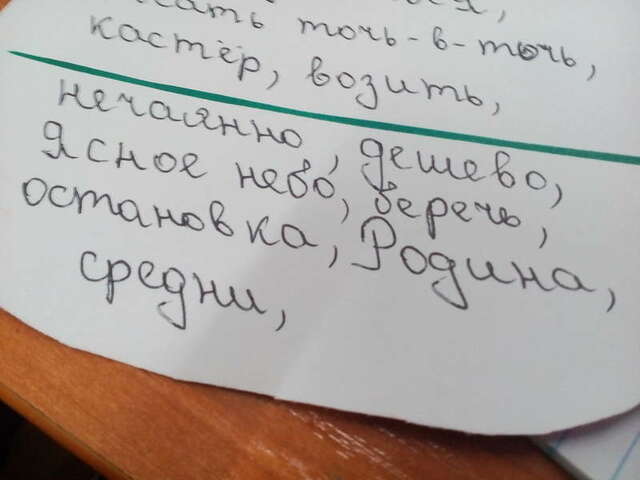 точь-в-точь,
кастёр, возить,
нечаянно, дешево,
Ясное небо, беречь,
остановка, Родина,
средни,